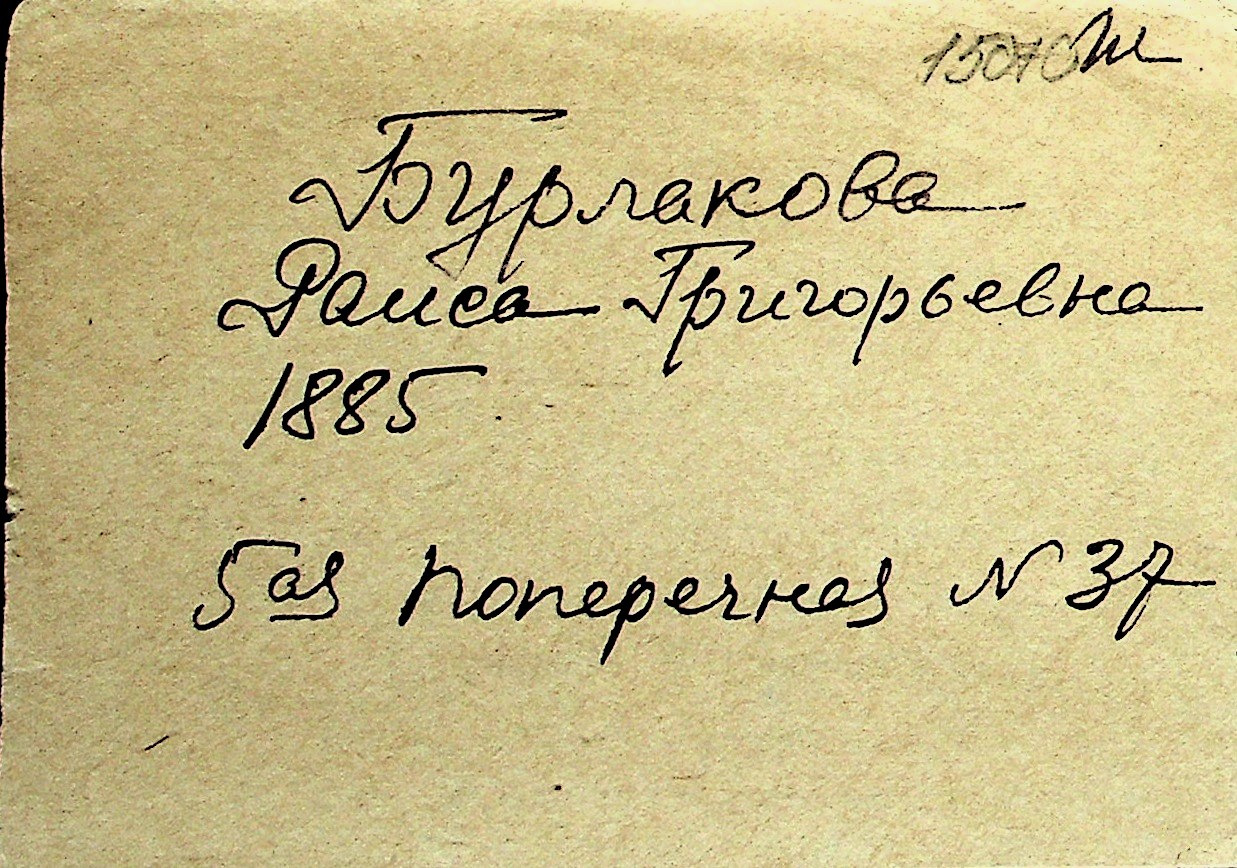 Бурлакова
Раиса Григорьевна
1885
5ая Поперечная N 37